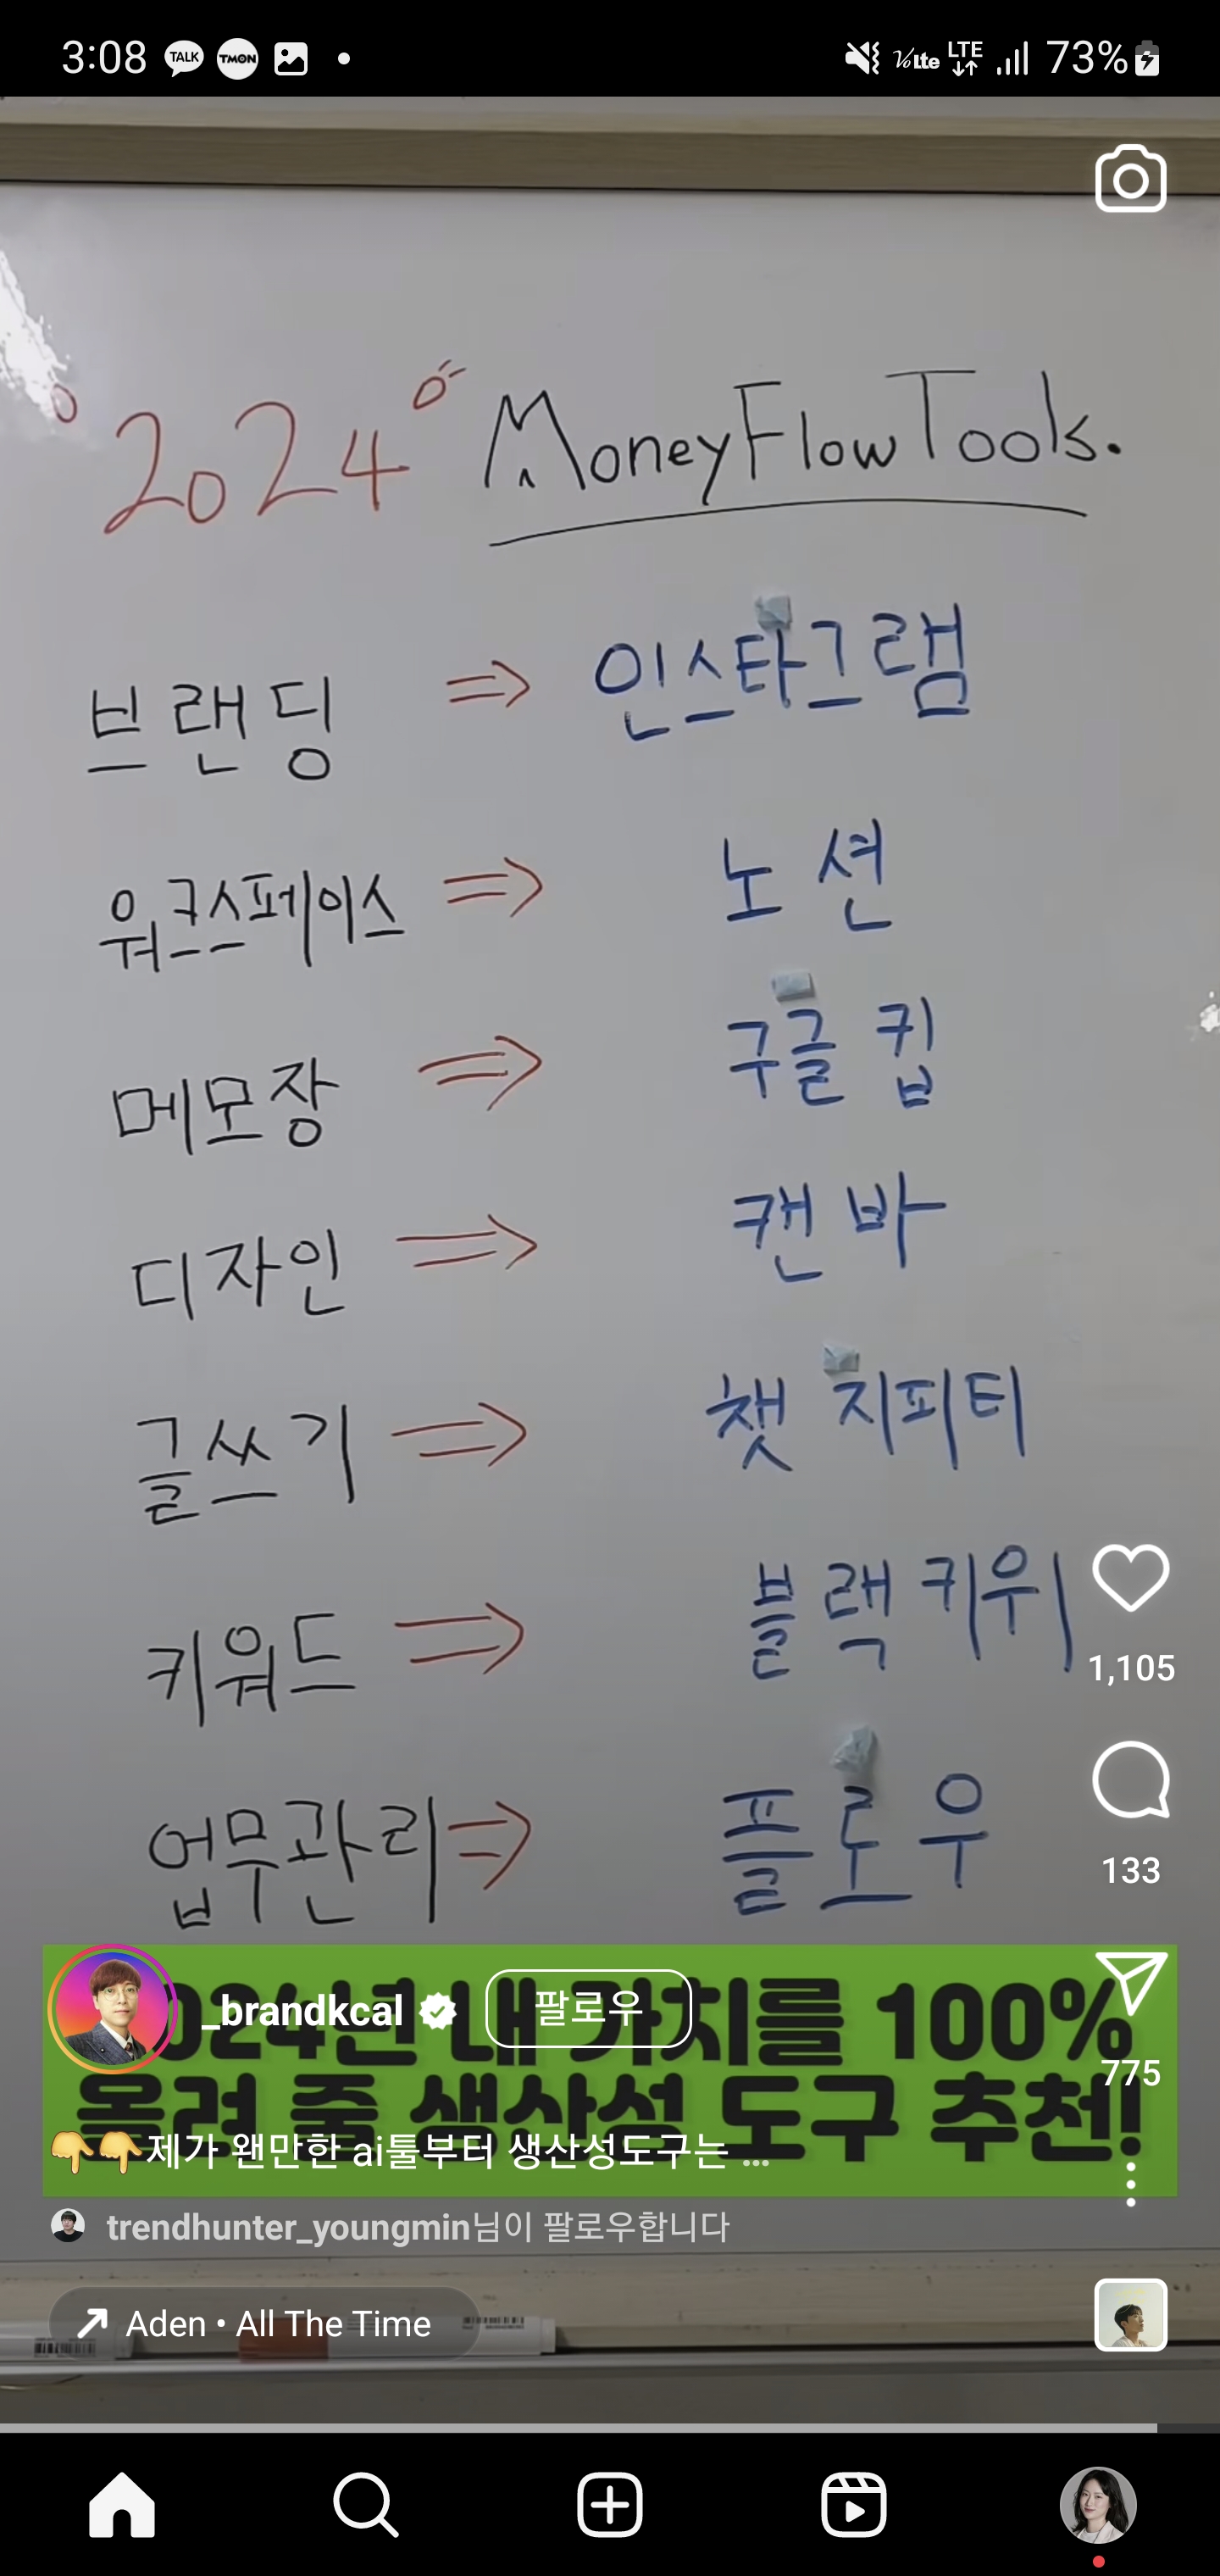 3:08 TALK TMON VoLTE LTE 73%
"2024" MoneyFlowTools.
브랜딩 ⇒ 인스타그램
워크스페이스 ⇒ 노션
메모장 ⇒ 구글 킵
디자인 ⇒ 캔바
글쓰기 ⇒ 챗 지피티
키워드 ⇒ 블랙키위
업무관리 ⇒ 플로우
1,105
133
775
2024년 내 가치를 100%
올려 줄 생산성 도구 추천!
_brandkcal 팔로우
👇👇제가 왠만한 ai툴부터 생산성도구는 ...
trendhunter_youngmin님이 팔로우합니다
Aden • All The Time